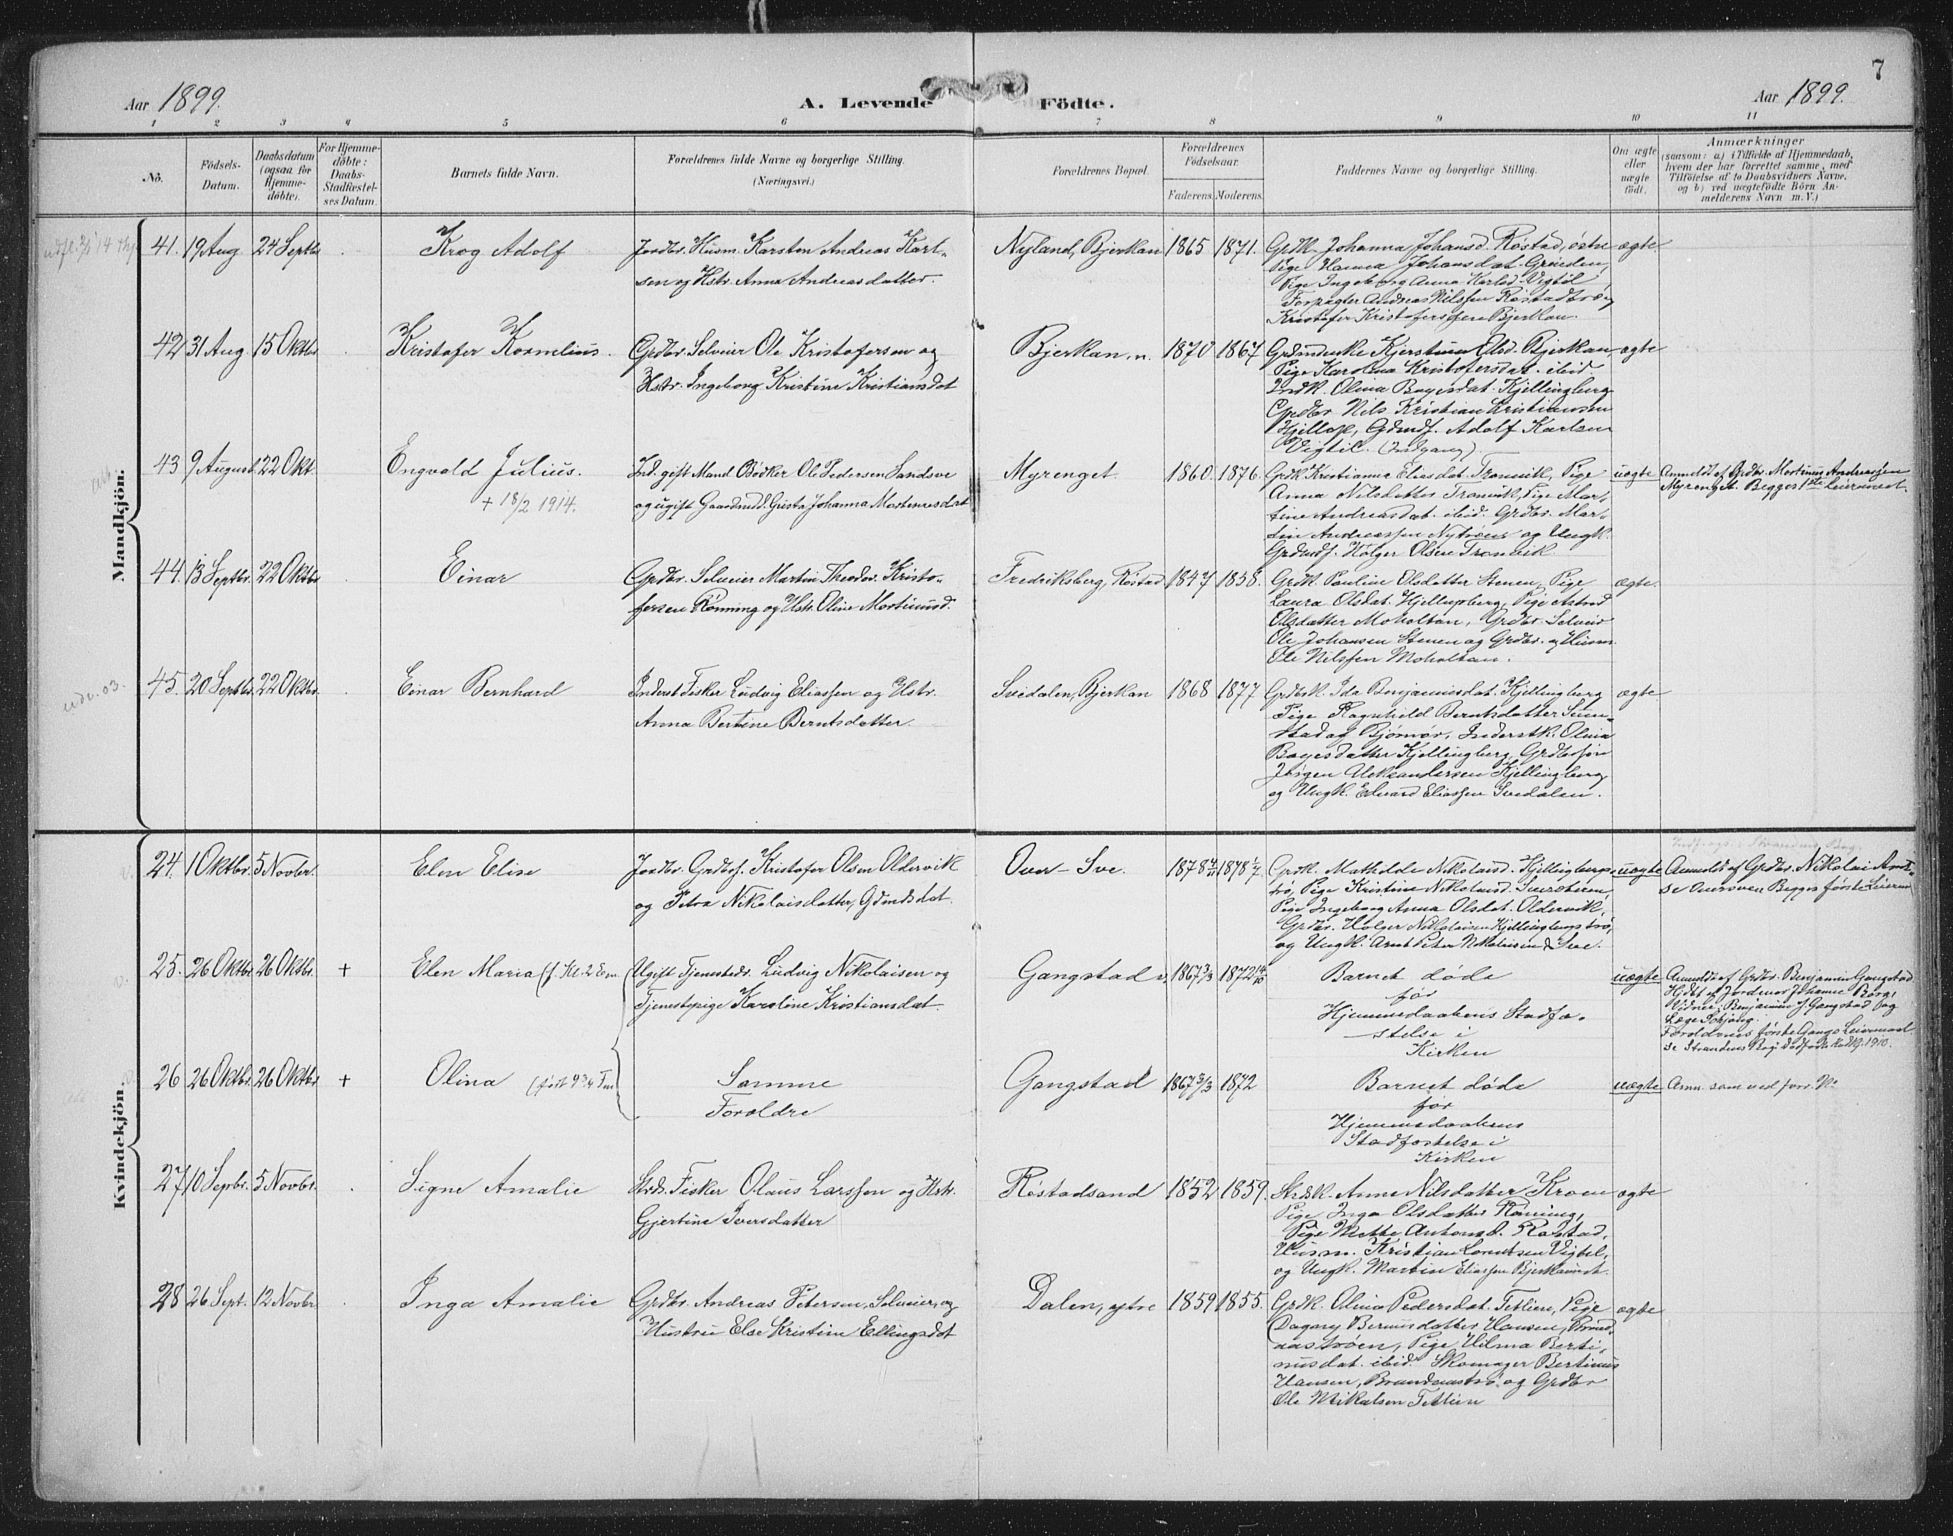 7
Aar 1899.
A. Levende Födte.
Aar 1899.
1 2 3 4 5 6 7 8 9 10 11
No.
Födsels-Datum.
Daabsdatum (ogsaa for Hjemme-döbte).
For Hjemme-döbte: Daabs-Stadfæstel-ses Datum.
Barnets fulde Navn.
Forældrenes fulde Navne og borgerlige Stilling.
(Næringsvei.)
Forældrenes Bopæl.
Forældrenes Födselsaar.
Faderens. Moderens.
Faddernes Navne og borgerlige Stilling.
Om ægte eller uægte födt.
Anmærkninger
(saasom: a) i Tilfælde af Hjemmedaab,
hvem der har forrettet samme, med
Tilföielse af to Daabsvidners Navne,
og b) ved uægtefödte Börn An-
melderens Navn m. V.)
Mandkjön.
41. 19 Aug. 24 Septbr Krog Adolf
Jordbr. Husm. Karsten Andreas Karl-
sen og Hstr. Anna Andreasdatter.
Nyland, Bjerkan 1865 1871.
Grdk. Johanna Johansd. Rostad, östre
Pige Hanna Johansdat. Grinden,
Pige Ingeborg Anna Karlsd. Vigtil
Forpagter Andreas Nilssen Rostadtrø og
Kristofer Kristoferssen Bjerkan.
ægte.
42 31 Aug. 15 Oktbr Kristofer Kornelius.
Grdbr. Selveier Ole Kristofersen og
Hstr. Ingeborg Kristine Kristiansdat
Bjerkan, n. 1870 1867
Grdmdenke Kjerstina Olsd. Bjerkan,
Pige Karolina Kristofersdat. ibid.
Indk. Olina Bagesdat. Kjellingberg
Grdbr Nils Kristian Kristiansen
Hjellup, Gdmdf. Adolf Karlsen
Vigtil. (Indgang).
ægte
43 9 August. 22 Okt. Engvald Julius.
+ 18/2 1914.
Ind. gift Mand Bødker Ole Pedersen Sandsve
og ugift Gaardmd. Gusta Johanna Mortensdat
Myrenget. 1860. 1876.
Grdk Kristianna Eliasdat. Tromvik, Pige
Anna Nilsdatter Tromvik, Pige Mar-
tine Andreasdat. ibid. Grdbr. Mar-
tin Andreassen Nytrøen og Ungk.
Grdmdf. Holger Olsen Tromvik
uægte
Anmeldt af Grdbr. Mortinus Andreasjen
Myrenget. Begges 1ste Leiermaal.
44. 13 Septbr. 22 Oktbr Einar
Grdbr. Selveier Martin Theodor Kristo-
fersen Rønning og Hstr. Oline Mortinusd.
Fredriksberg, Rostad 1847 1858.
Grdk Pauline Olsdatter Stenen, Pige
Laura Olsdat. Hjellupberg, Pige Astrid
Olsdatter Moholtan, Grdbr. Selveier
Ole Johansen Stenen og Grdbr. og Husm
Ole Nilssen Moholtan.
ægte.
45. 20 Septbr 22 Oktbr. Einar Bernhard
Inderst Fisker Ludvig Eliassen og Hstr.
Anna Bertine Berntsdatter.
Svedalen, Bjerkan 1868 1877
Grdbrk. Ida Benjaminsdat. Kjellingberg
Pige Ragnhild Berntsdatter Sven-
stad af Bjørnør, Inderstk. Olina
Bagesdatter Kjellingberg, Grdbrsøn
Jörgen Aleksandersen Kjellingberg
og Ungk. Edvard Eliassen Svedalen.
ægte.
Kvindekjön.
24. 1 Oktbr. 5 Novbr. Elen Elise
Jordbr. Grdbsf. Kristofer Olsen Oldervik
og Petra Nikolaisdatter, Gdmdsdat.
Over-Sve. 1878 1878
Grdk. Mathilde Nikolausd. Kjellingbergs-
trø, Pige Kristine Nikolausd. Svesæteren
Pige Ingeborg Anna Olsdat. Oldervik,
Grdbr. Holger Nikolaisen Kjellingbergstrø,
og Ungk. Arnt Peter Nikolaisen Sve.
uægte
Anmeldt af Grdbr. Nikolai Arnt-
sen Oversven Begges første Leierm
25. 26 Oktbr 26 Oktbr. + Elen Maria (f. Kl. 2 Em.
Ugift Tjenstedr. Ludvig Nikolaisen og
Tjenstepige Karoline Kristiansdat.
Gangstad v. 1867 3/3 1872
Barnet døde
før
Hjemmedaabens Stadfæ-
stelse i
Kirken
uægte
Anmeldt af Grdbr. Benjamin Gangstad
Hjdbt af Jordemor Johanne Borg,
Vidner: Benjamin J. Gangstad og
Læge Sohjang.
Forældrenes første Gangs Leiermaal
26 26 Oktbr. 26 Oktbr + Olina (født 9 3/4 Fm
Samme
Foraldre
Gangstad 1867 3/3 1872
Barnet døde
før
Hjemmedaabens
Stadfæstelse i
Kirken
uægte
Anm. som ved forr. No
27 10 Sepbr. 5 Novbr. Signe Amalie
Strds. Fisker Olaus Larssen og Hstr.
Gjertine Iversdatter
Rostadsand 1852 1859.
Strdsk. Anne Nilsdatter Kroen
Pige Inga Olsdatter Rønning,
Pige Mette Antonsd. Rostad,
Husm. Kristian Lorntsen Vigtil,
og Ungk. Martin Eliassen Bjerkanvdt.
ægte
28 26 Sept. 12 Novbr. Inga Amalie
Grdbr. Andreas Petersen, Selveier, og
Hustru Else Kristine Ellingsdt
Dalen, ytre 1859 1855.
Grdk. Olina Pedersdat. Tetlien, Pige
Dagny Bernusdatter Hansen, Brand-
aastrøen, Pige Hilma Berti-
nusdat. ibid. Skomager Bertinus
Hansen, Brandaastrø og Grdbr
Ole Mikalsen Tetlien
ægte